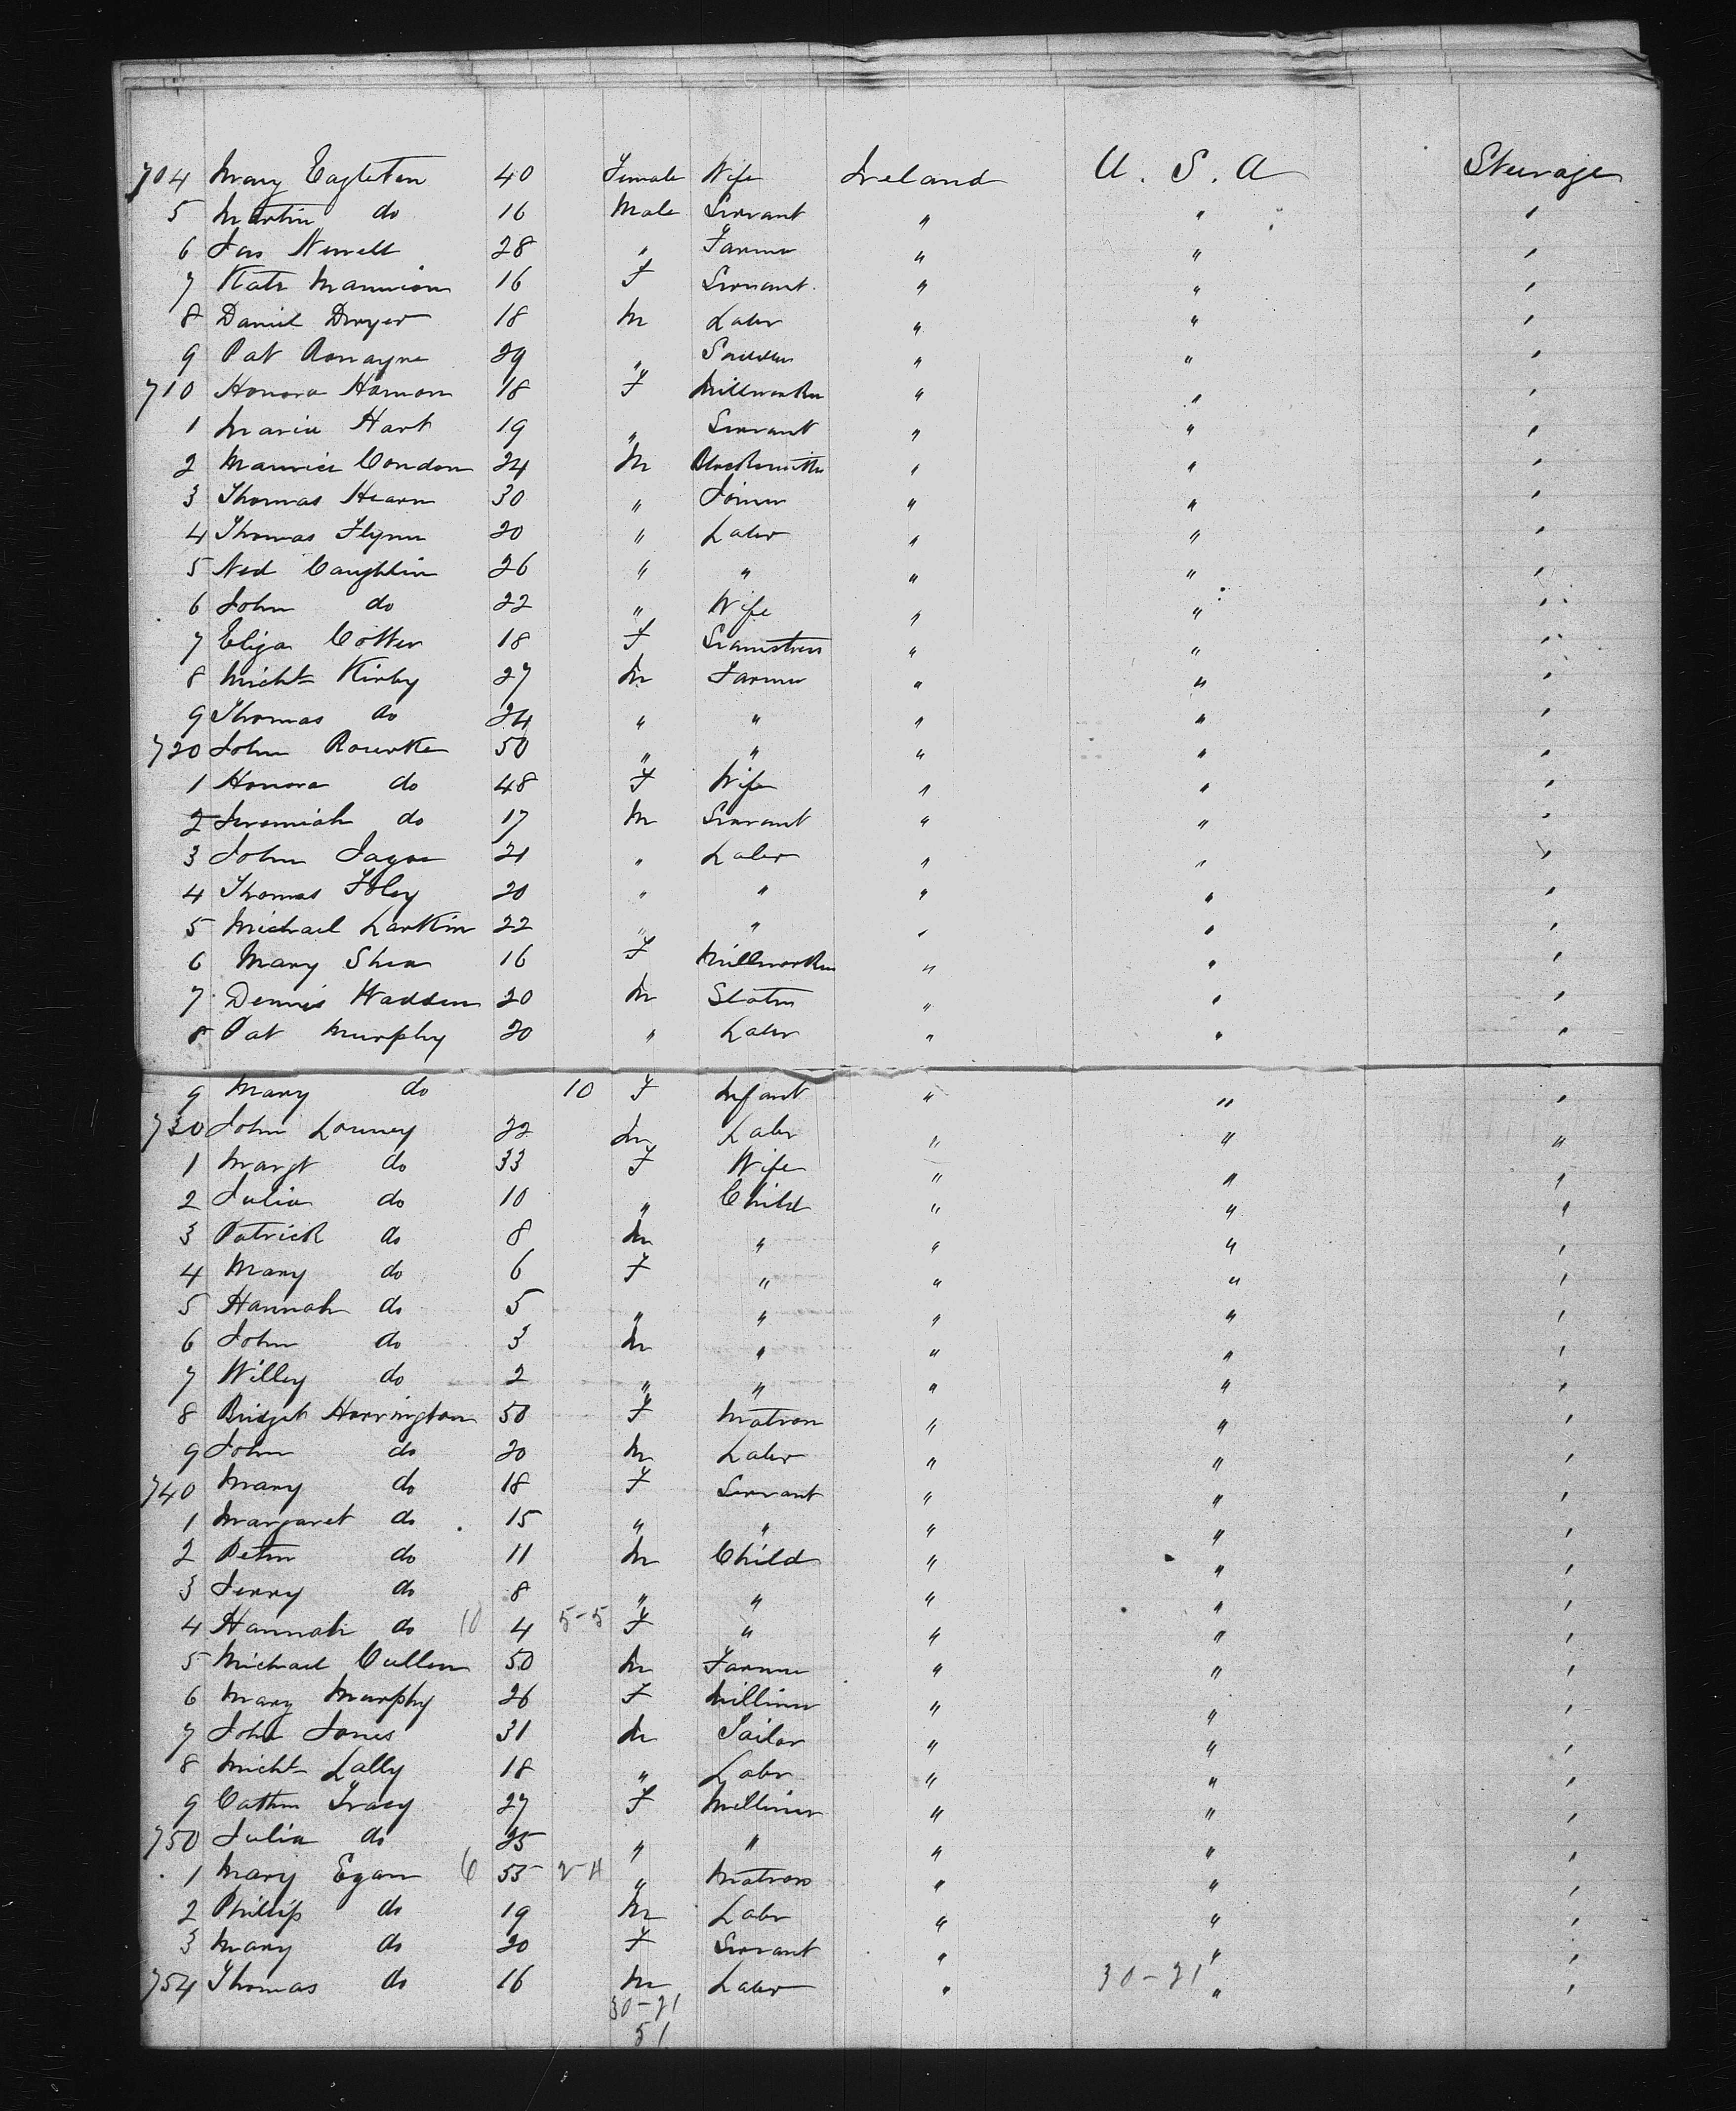 704 Mary Eagleton 40 Female Wife Ireland U. S. A Steerage
5 Martin do 16 Male Servant " " "
6 Jas Newell 28 " Farmer " " "
7 Kate Mannion 16 F Servant " " "
8 Daniel Dwyer 18 M Labr " " "
9 Pat Ronayne 29 " Saddler " " "
710 Honora Hannon 18 F Millworker " " "
1 Maria Hart 19 " Servant " " "
2 Maurice Condon 24 M Blacksmith " " "
3 Thomas Hearn 30 " Joiner " " "
4 Thomas Flynn 20 " Labor " " "
5 Ned Caughlin 26 " " " " "
6 John do 22 " Wife " " "
7 Eliza Cotter 18 F Seamstress " " "
8 Michl Kirby 27 M Farmer " " "
9 Thomas do 24 " " " " "
720 John Rourke 50 " " " " "
1 Honora do 48 F Wife " " "
2 Jeremiah do 17 M Servant " " "
3 John Jagoe 21 " Labor " " "
4 Thomas Foley 20 " " " " "
5 Michael Larkin 22 " " " " "
6 Mary Shea 16 F Millworker " " "
7 Dennis Hadden 20 M Slater " " "
8 Pat Murphy 20 " Labor " " "
9 Mary do 10 F Infant " " "
730 John Lowney 22 M Labr " " "
1 Margt do 33 F Wife " " "
2 Julia do 10 " Child " " "
3 Patrick do 8 M " " " "
4 Mary do 6 F " " " "
5 Hannah do 5 " " " " "
6 John do 3 M " " " "
7 Willey do 2 " " " " "
8 Bridget Harrington 50 F Matron " " "
9 John do 20 M Labor " " "
740 Mary do 18 F Servant " " "
1 Margaret do 15 " " " " "
2 Peter do 11 M Child " " "
3 Jerry do 8 " " " " "
4 Hannah do 10 4 5-5 F " " " "
5 Michael Cullen 50 M Farmer " " "
6 Mary Murphy 26 F Milliner " " "
7 John Jones 31 M Tailor " " "
8 Michl Lally 18 " Labr " " "
9 Cathn Tracy 27 F Milliner " " "
750 Julia do 25 " " " " "
1 Mary Egan 6 55 2-4 " Matron " " "
2 Phillip do 19 M Labr " " "
3 Mary do 20 F Servant " " "
754 Thomas do 16 M Labor " 30-21 " "
30-21
51